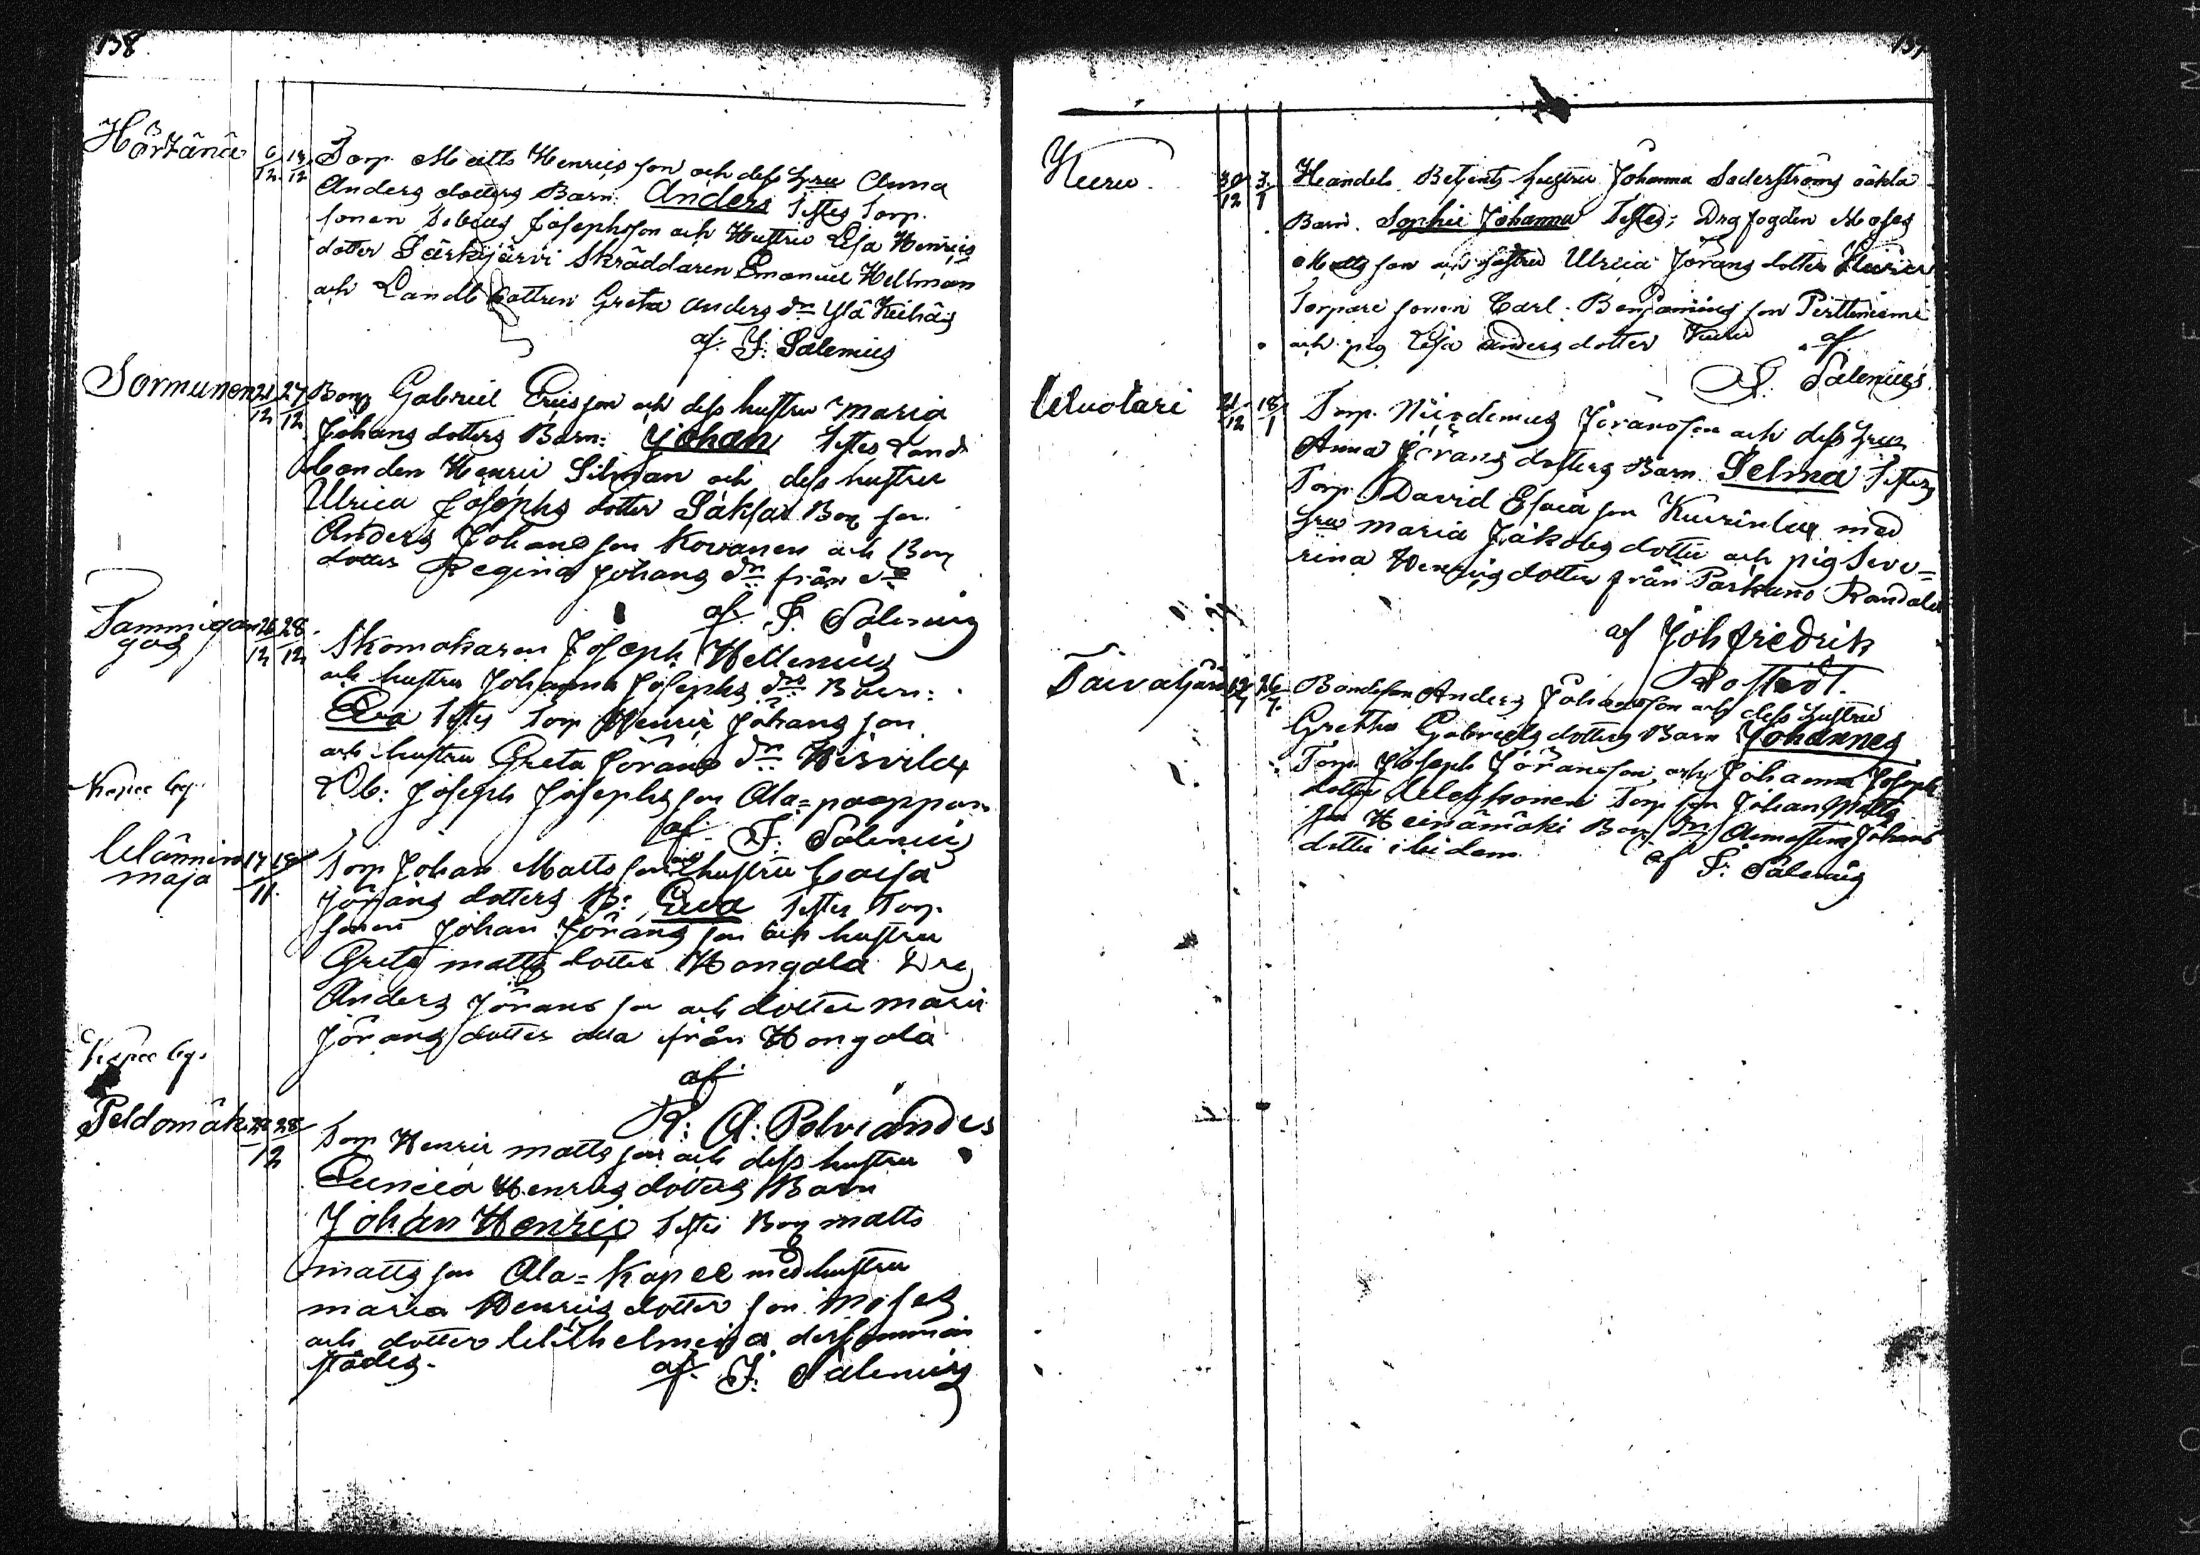 138
Hörtänä 6/12 14/12 Torp. Matts Henrics son och dess hru Anna
Anders dotters Barn. Anders Testes Torp.
sonen Tobias Josephsson och Hustru Lisa Henrics
dotter Särkijärvi Skräddaren Emanuel Hellman
och Landb dottren Greta Anders dr Ylä Keihäs
af. F. Salenius
Sormunen 21/12 27/12 Bong Gabriel Ericsson och dess hustru Maria
Johans dotters Barn: Johan Testes Land
bonden Henric Silman och dess hustru
Ulrica Josephs dotter Bon son
Anders Johans son Kovanen och Bon
dotter Regina Johans dr från do
af. F. Salenius
Tammigan 26/12 28/12 Skomakaren Joseph Hellenius
gas
och hustru Johanna Josephs drs Barn:
Eva Testes Torp Henric Johans son
och hustru Greta Jörans dr
Db: Joseph Josephs son Ala=poappan
af. F. Salenius
Kapee by.
Wännin 17 19/11 Torp Johan Matts son och hustru Caisa
maja
Jörans dotters B: Eva Testes Torp.
sonen Johan Jörans son och hustru
Greta matts dotter Hongola Drg
Anders Jörans son och dotter maria
Jörans dotter alla från Hongola
af
R: A: Polviander
Kapee by.
Peldomäki 28/12 Torp Henric matts son och dess hustru
Eunicia Henrics dotters Barn
Johan Henric Testes Bon matts
matts son Ala=Kapee med hustru
maria Henrics dotter son Moses
och dotter Wilhelmina dersammas
städes.
af. F. Salenius
139
Kuru. 30/12 3/1 Handels Betjents hustru Johanna Söderströms oäkta
Barn. Sophie Johanna Testes; Drg fogden Moses
Matts son och hustru Ulrica Jörans dotter Kuru
Torpare sonen Carl Benjamins son Perttiniemi
och pig Lisa Anders dotter Kuru af
F. Salenius.
Wuolari 21/12 18/1 Torp. Nicodemus Jöransson och dess hru
Anna Jörans dotters Barn Selma Testes
Torp. David Esaia son med
hru maria Jakobs dotter och pig Seve=
rina Henrics dotter från Parkano
af Joh fredrik
Rostedt.
26/7 Bondeson Anders Johansson och dess hustru
Gretha Gabriels dotters Barn Johannes
Torp Joseph Jöransson och Johanna Joseph
dotter Torp son Johan Matts
son Heinämäki Bon dr Johans
dotter ibidem.
af F. Salenius
KODAK SAFETY FILM